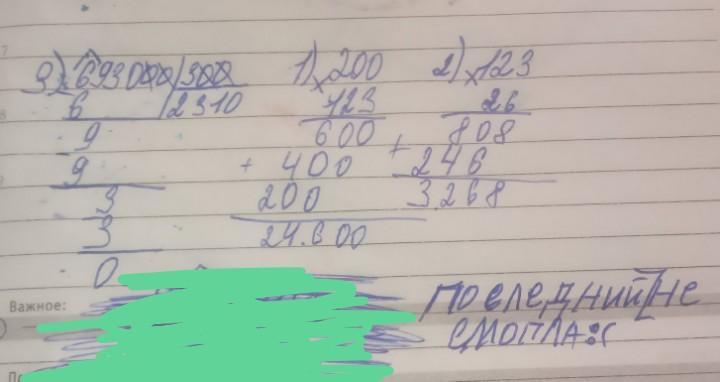 3) 693000 | 300
6 | 2310
9
9
3
3
0
1) × 200
123
600
+ 400
200
24.600
2) × 123
26
808
+ 246
3.268
Важное:
ПОСЛЕДНИЙ НЕ
СМОГЛА:(